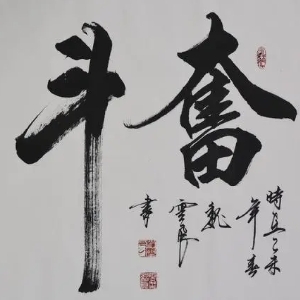 奮斗
時在乙未
年春
魏
雲飛
書